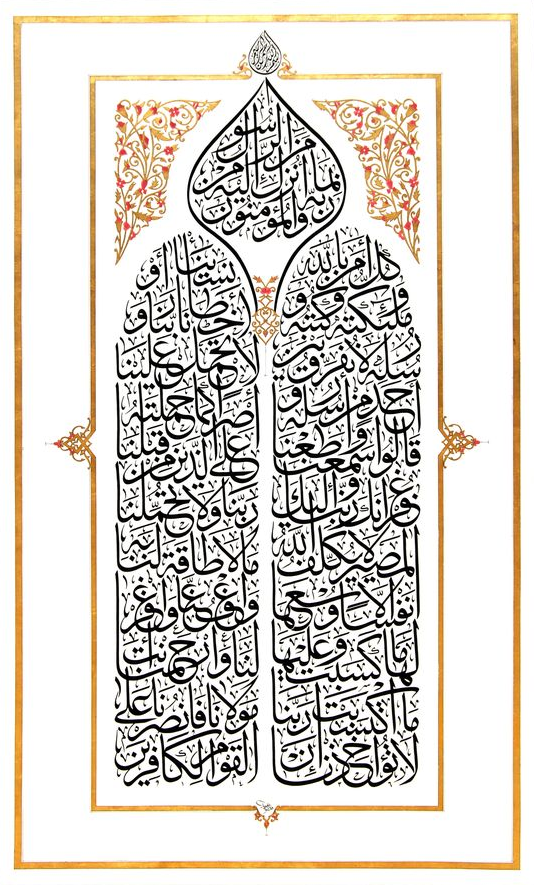 آمن الرسول
بما أنزل إليه من
ربه والمؤمنون
كل آمن بالله
وملئكته وكتبه و
رسله لا نفرق بين
أحد من رسله و
قالوا سمعنا وأطعنا
غفرانك ربنا وإليك
المصير لا يكلف الله
نفسا إلا وسعها
لها ما كسبت وعليها
ما اكتسبت ربنا
لا تؤاخذنا إن
نسينا أو
أخطأنا ربنا و
لا تحمل علينا
إصرا كما حملته
على الذين من قبلنا
ربنا ولا تحملنا
ما لا طاقة لنا به
واعف عنا واغفر
لنا وارحمنا أنت
مولانا فانصرنا على
القوم الكافرين